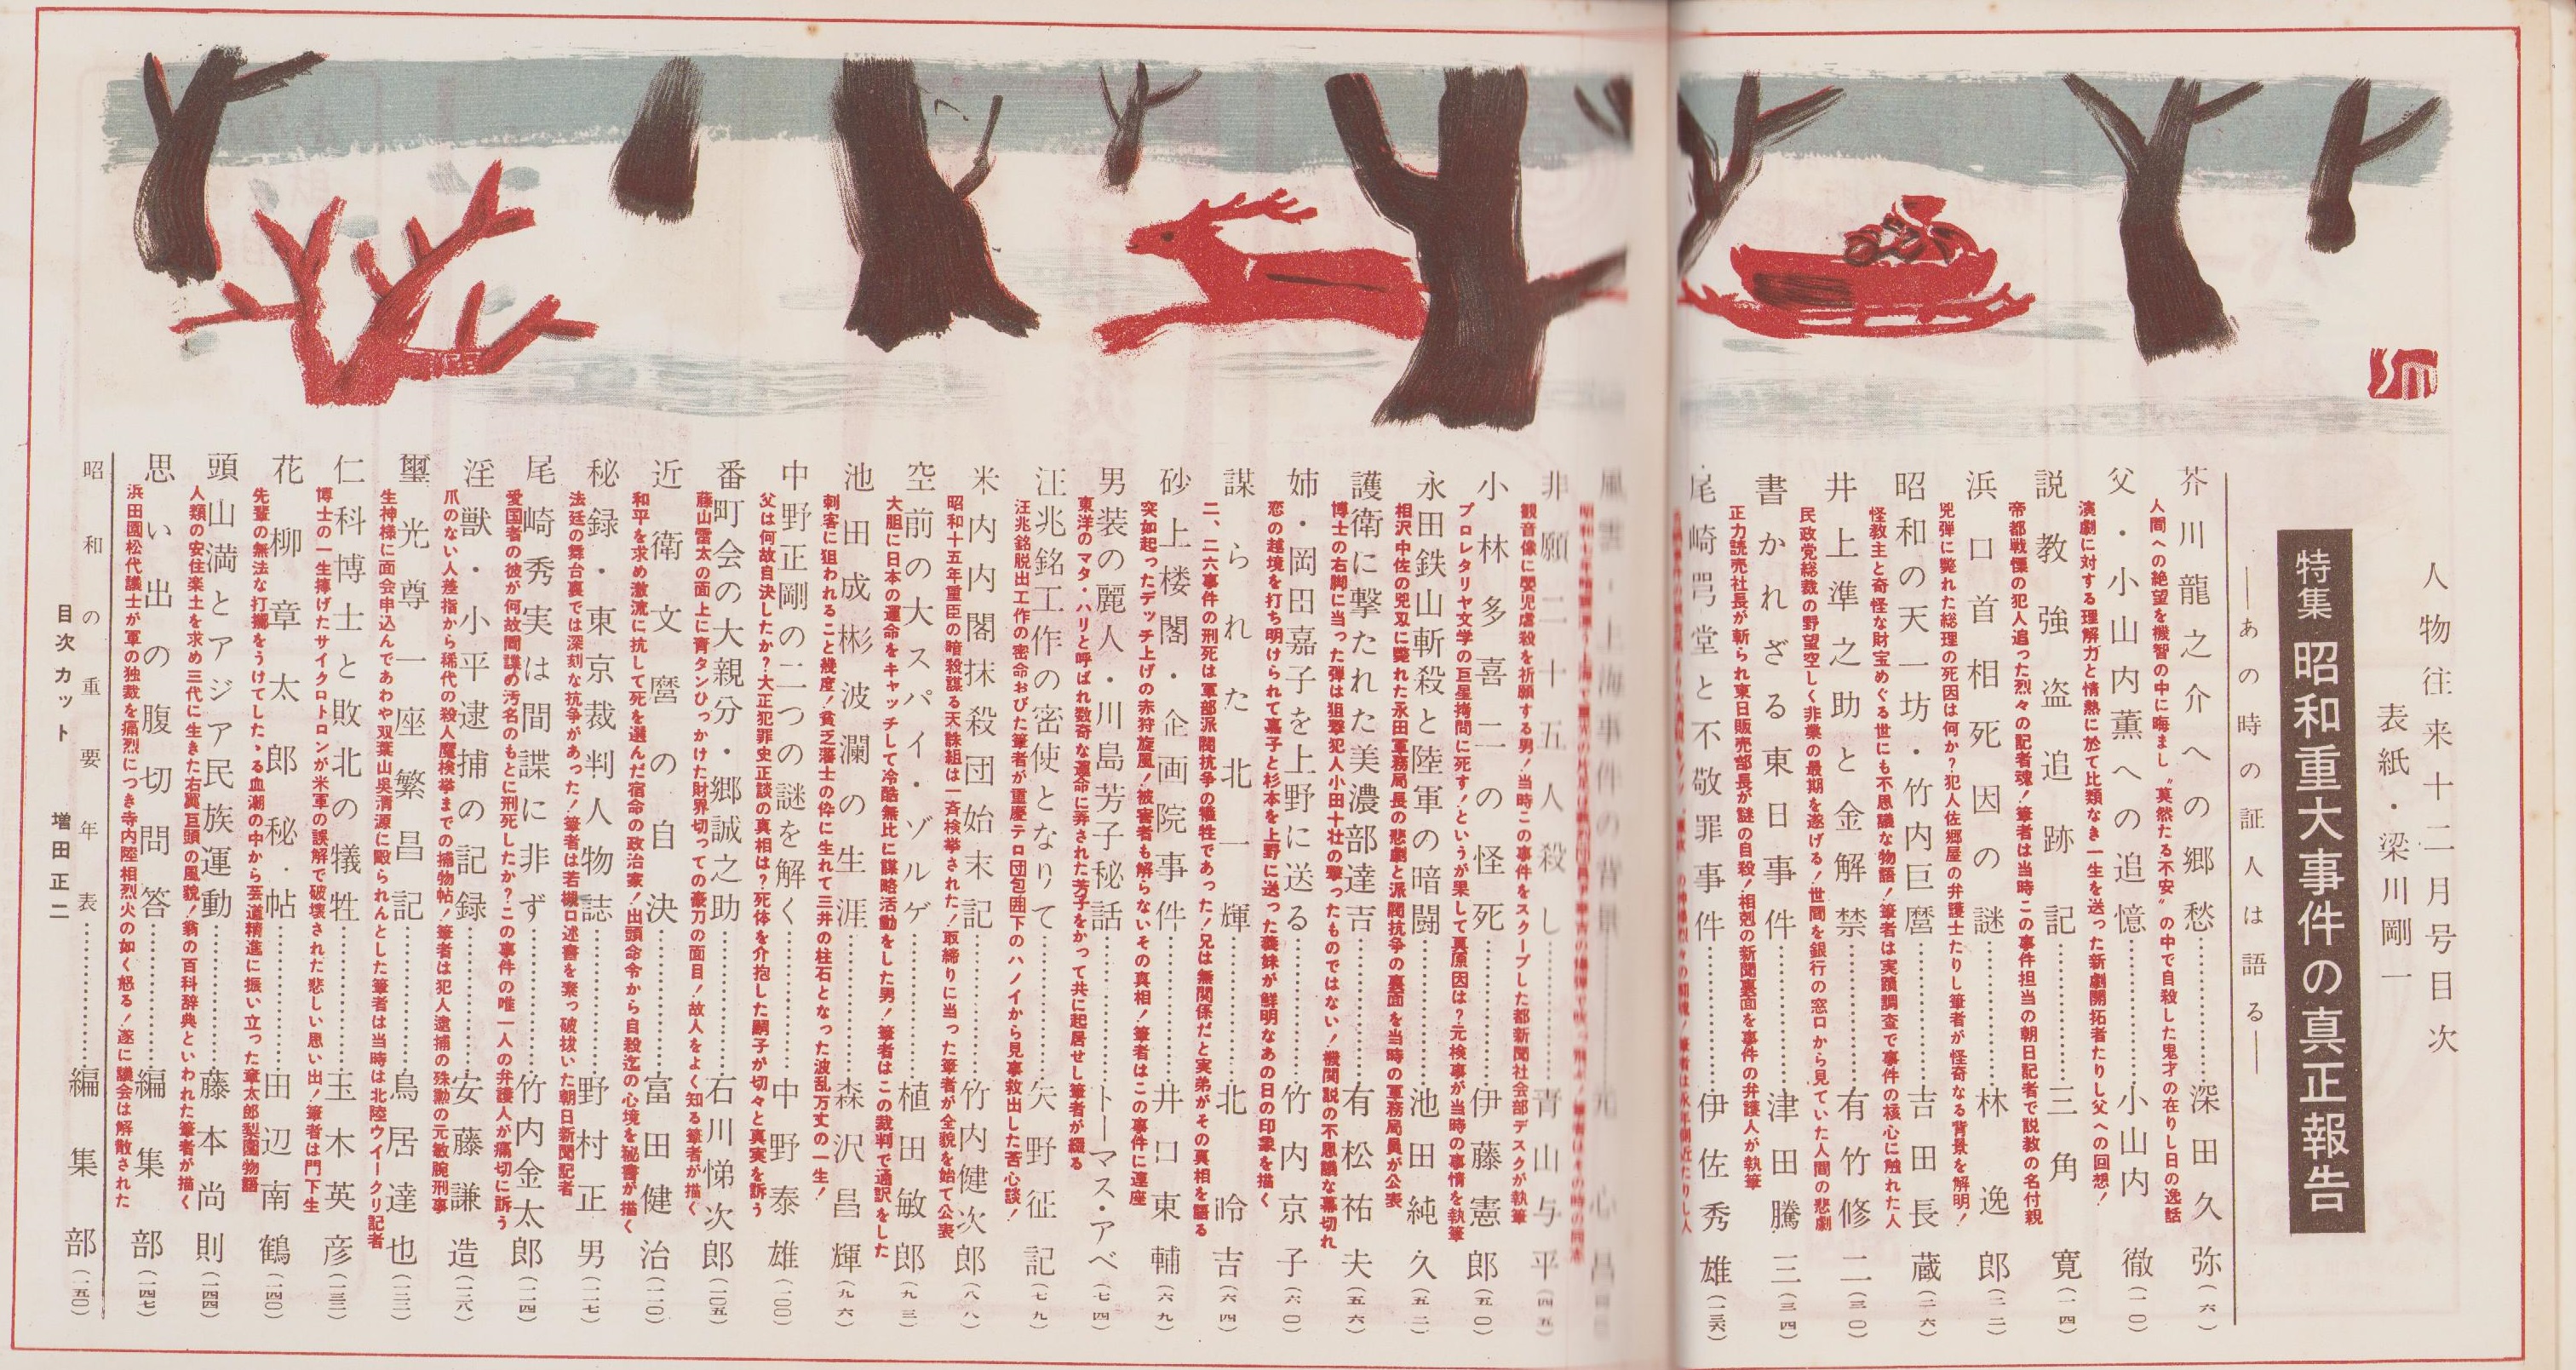 人物往来十二月号目次
表紙・梁川剛一
特集 昭和重大事件の真正報告
――あの時の証人は語る――
芥川龍之介への郷愁…………深田久弥(六)
人間への絶望を機智の中に晦まし〝莫然たる不安〟の中で自殺した鬼才の在りし日の逸話
父・小山内薫への追憶…………小山内徹(一〇)
演劇に対する理解力と情熱に於て比類なき一生を送った新劇開拓者たりし父への回想!
説教強盗追跡記…………三角寛(一四)
帝都戦慄の犯人追った烈々の記者魂!筆者は当時この事件担当の朝日記者で説教の名付親
浜口首相死因の謎…………林逸郎(二二)
兇弾に斃れた総理の死因は何か?犯人佐郷屋の弁護士たりし筆者が怪奇なる背景を解明!
昭和の天一坊・竹内巨麿…………吉田長蔵(二六)
怪教主と奇怪な財宝めぐる世にも不思議な物語!筆者は実蹟調査で事件の核心に触れた人
井上準之助と金解禁…………有竹修二(三〇)
民政党総裁の野望空しく非業の最期を遂げる!世間を銀行の窓口から見ていた人間の悲劇
書かれざる東日事件…………津田騰三(三四)
正力読売社長が斬られ東日販売部長が謎の自殺!相剋の新聞裏面を事件の弁護人が執筆
尾崎咢堂と不敬罪事件…………伊佐秀雄(一三六)
風雲・上海事件の背景
非願二十五人殺し…………青山与平(四五)
観音像に嬰児虐殺を祈願する男!当時この事件をスクープした都新聞社会部デスクが執筆
小林多喜二の怪死…………伊藤憲郎(五〇)
プロレタリヤ文学の巨星拷問に死す!というが果して真原因は?元検事が当時の事情を執筆
永田鉄山斬殺と陸軍の暗闘…………池田純久(五二)
相沢中佐の兇刃に斃れた永田軍務局長の悲劇と派閥抗争の裏面を当時の軍務局員が公表
護衛に撃たれた美濃部達吉…………有松祐夫(五六)
博士の右脚に当った弾は狙撃犯人小田十壮の撃ったものではない!機関説の不思議な幕切れ
姉・岡田嘉子を上野に送る…………竹内京子(六〇)
恋の越境を打ち明けられて嘉子と杉本を上野に送った義妹が鮮明なあの日の印象を描く
謀られた北一輝…………北昤吉(六四)
二、二六事件の刑死は軍部派閥抗争の犠牲であった!兄は無関係だと実弟がその真相を語る
砂上楼閣・企画院事件…………井口東輔(六九)
突如起ったデッチ上げの赤狩旋風!被害者も解らないその真相!筆者はこの事件に連座
男装の麗人・川島芳子秘話…………トーマス・アベ(七四)
東洋のマタ・ハリと呼ばれ数奇な運命に弄された芳子をかって共に起居せし筆者が綴る
汪兆銘工作の密使となりて…………矢野征記(七九)
汪兆銘脱出工作の密命おびた筆者が重慶テロ団包囲下のハノイから見事救出した苦心談!
米内内閣抹殺団始末記…………竹内健次郎(八八)
昭和十五年重臣の暗殺謀る天誅組は一斉検挙された!取締りに当った筆者が全貌を始て公表
空前の大スパイ・ゾルゲ…………植田敏郎(九三)
大胆に日本の運命をキャッチして冷酷無比に謀略活動をした男!筆者はこの裁判で通訳をした
池田成彬波瀾の生涯…………森沢昌輝(九六)
刺客に狙われること幾度!貧乏藩士の伜に生れて三井の柱石となった波乱万丈の一生!
中野正剛の二つの謎を解く…………中野泰雄(一〇〇)
父は何故自決したか?大正犯罪史正談の真相は?死体を介抱した嗣子が切々と真実を訴う
番町会の大親分・郷誠之助…………石川悌次郎(一〇五)
藤山雷太の面上に青タンひっかけた財界切っての豪刀の面目!故人をよく知る筆者が描く
近衛文麿の自決…………富田健治(一一〇)
和平を求め激流に抗して死を選んだ宿命の政治家!出頭命令から自殺迄の心境を秘書が描く
秘録・東京裁判人物誌…………野村正男(一一七)
法廷の舞台裏では深刻な抗争があった!筆者は若槻口述書を素っ破抜いた朝日新聞記者
尾崎秀実は間諜に非ず…………竹内金太郎(一二四)
愛国者の彼が何故間諜の汚名のもとに刑死したか?この事件の唯一人の弁護人が痛切に訴う
淫獣・小平逮捕の記録…………安藤謙造(一二八)
爪のない人差指から稀代の殺人魔検挙までの捕物帖!筆者は犯人逮捕の殊勲の元敏腕刑事
璽光尊一座繁昌記…………鳥居達也(一三二)
生神様に面会申込んであわや双葉山呉清源に毆られんとした筆者は当時は北陸ウイークリ記者
仁科博士と敗北の犠牲…………玉木英彦(一三三)
博士の一生捧げたサイクロトロンが米軍の誤解で破壊された悲しい思い出!筆者は門下生
花柳章太郎秘・帖…………田辺南鶴(一四〇)
先輩の無法な打擲をうけてしたゝる血潮の中から芸道精進に振い立った章太郎梨園物語
頭山満とアジア民族運動…………藤本尚則(一四四)
人類の安住楽土を求め三代に生きた右翼巨頭の風貌!翁の百科辞典といわれた筆者が描く
思い出の腹切問答…………編集部(一四七)
浜田国松代議士が軍の独裁を痛烈につき寺内陸相烈火の如く怒る!遂に議会は解散された
昭和の重要年表…………編集部(一五〇)
目次カット 増田正二